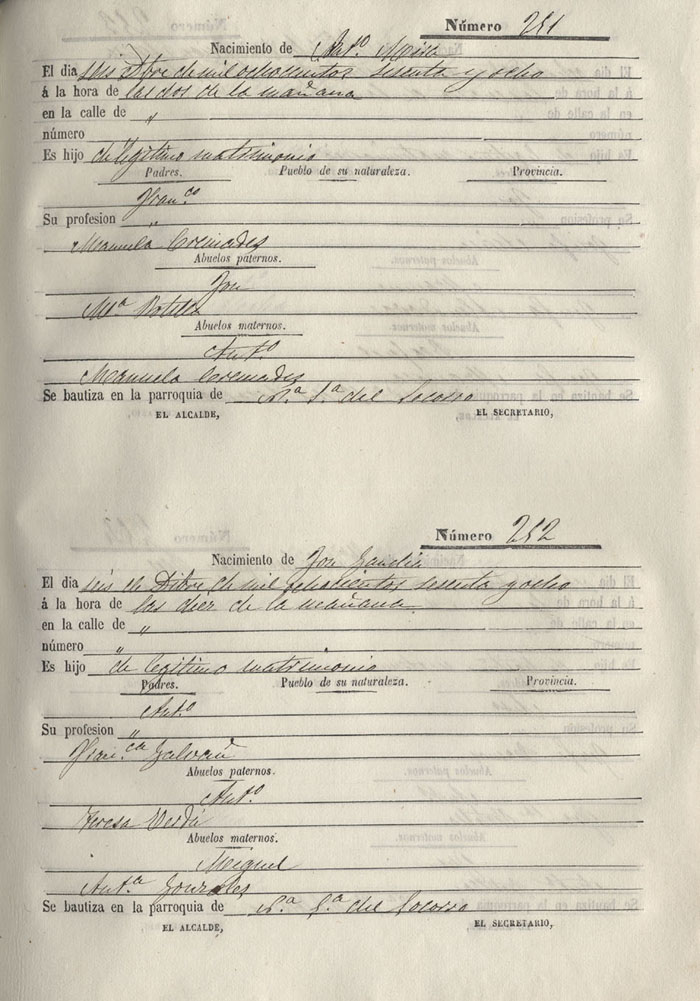 Número 251
Nacimiento de Antº Mira
El dia seis Dbre de mil ochocientos sesenta y ocho
á la hora de las dos de la mañana
en la calle de "
número "
Es hijo de legitimo matrimonio
Padres. Pueblo de su naturaleza. Provincia.
Franco
Su profesion "
Manuela Cremades
Abuelos paternos.
José
Mª Botella
Abuelos maternos.
Antº
Manuela Cremades
Se bautiza en la parroquia de Nª Sª del Socorro
EL ALCALDE, EL SECRETARIO,
Número 252
Nacimiento de José
El dia seis de Dibre de mil ochocientos sesenta y ocho
á la hora de las diez de la mañana
en la calle de "
número "
Es hijo de legitimo matrimonio
Padres. Pueblo de su naturaleza. Provincia.
Antº
Su profesion "
Franca Galvañ
Abuelos paternos.
Antº
Teresa Verdú
Abuelos maternos.
Miguel
Antª Gonzales
Se bautiza en la parroquia de Nª Sª del Socorro
EL ALCALDE, EL SECRETARIO,